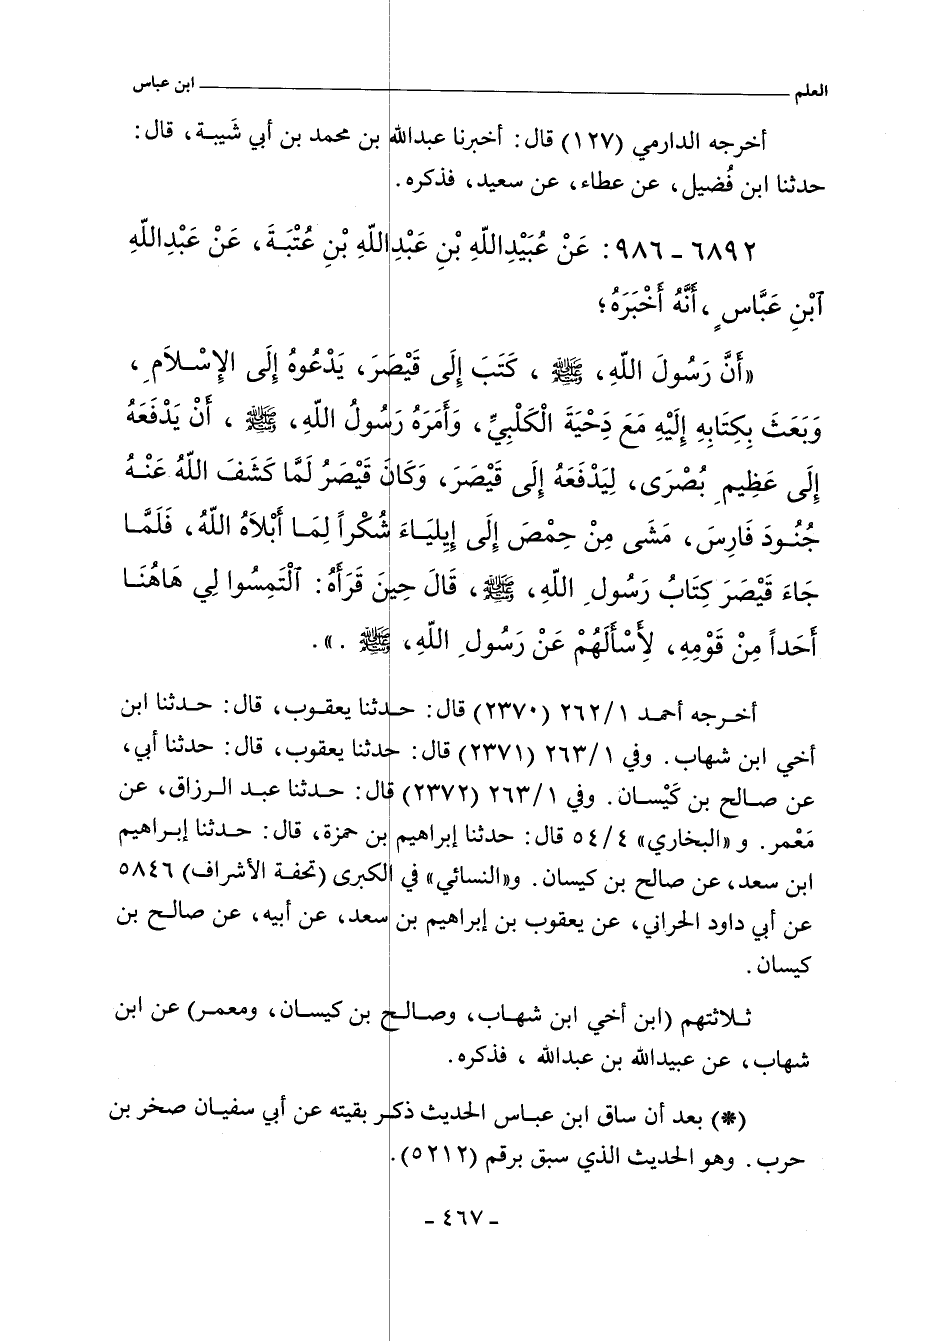 العلم ابن عباس
أخرجه الدارمي (١٢٧) قال: أخبرنا عبدالله بن محمد بن أبي شَيبة، قال:
حدثنا ابن فُضيل، عن عطاء، عن سعيد، فذكره.
٦٨٩٢ - ٩٨٦: عَنْ عُبَيْدِاللّهِ بْنِ عَبْدِاللّهِ بْنِ عُتْبَةَ، عَنْ عَبْدِاللّهِ
ٱبْنِ عَبَّاسٍ، أَنَّهُ أَخْبَرَهُ؛
«أَنَّ رَسُولَ اللّهِ، ﷺ، كَتَبَ إِلَى قَيْصَرَ، يَدْعُوهُ إِلَى الإِسْلاَمِ،
وَبَعَثَ بِكِتَابِهِ إِلَيْهِ مَعَ دَحْيَةَ الْكَلْبِيِّ، وَأَمَرَهُ رَسُولُ اللّهِ، ﷺ، أَنْ يَدْفَعَهُ
إِلَى عَظِيمِ بُصْرَى، لِيَدْفَعَهُ إِلَى قَيْصَرَ، وَكَانَ قَيْصَرُ لَمَّا كَشَفَ اللّهُ عَنْهُ
جُنُودَ فَارِسَ، مَشَى مِنْ حِمْصَ إِلَى إِيلِيَاءَ شُكْراً لِمَا أَبْلاَهُ اللّهُ، فَلَمَّا
جَاءَ قَيْصَرَ كِتَابُ رَسُولِ اللّهِ، ﷺ، قَالَ حِينَ قَرَأَهُ: ٱلْتَمِسُوا لِي هَاهُنَا
أَحَداً مِنْ قَوْمِهِ، لِأَسْأَلَهُمْ عَنْ رَسُولِ اللّهِ، ﷺ.».
أخرجه أحمد ١/٢٦٢ (٢٣٧٠) قال: حدثنا يعقوب، قال: حدثنا ابن
أخي ابن شهاب. وفي ١/٢٦٣ (٢٣٧١) قال: حدثنا يعقوب، قال: حدثنا أبي،
عن صالح بن كَيْسان. وفي ١/٢٦٣ (٢٣٧٢) قال: حدثنا عبد الرزاق، عن
مَعْمر. و«البخاري» ٤/٥٤ قال: حدثنا إبراهيم بن حمزة، قال: حدثنا إبراهيم
ابن سعد، عن صالح بن كيسان. و«النسائي» في الكبرى (تحفة الأشراف) ٥٨٤٦
عن أبي داود الحراني، عن يعقوب بن إبراهيم بن سعد، عن أبيه، عن صالح بن
كيسان.
ثلاثتهم (ابن أخي ابن شهاب، وصالح بن كيسان، ومعمر) عن ابن
شهاب، عن عبيدالله بن عبدالله، فذكره.
(*) بعد أن ساق ابن عباس الحديث ذكر بقيته عن أبي سفيان صخر بن
حرب. وهو الحديث الذي سبق برقم (٥٢١٢).
- ٤٦٧ -